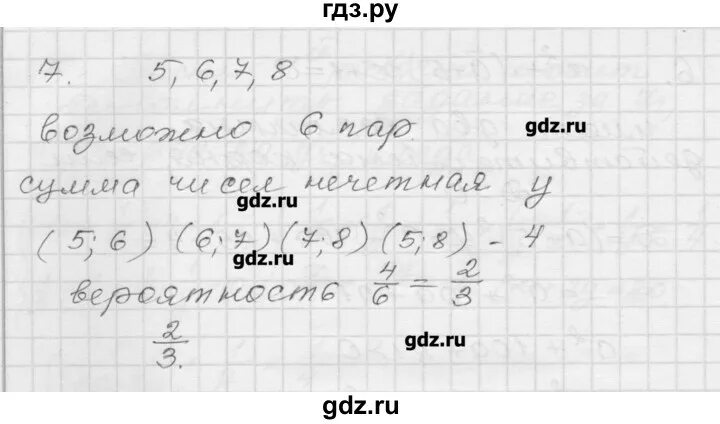 гдз.ру
7. 5, 6, 7, 8
возможно 6 пар.
gdz.ru
сумма чисел нечетная у
gdz.ru
(5; 6) (6; 7) (7; 8) (5; 8) - 4
gdz.ru
вероятность 4/6 = 2/3
gdz.ru
2/3.
gdz.ru